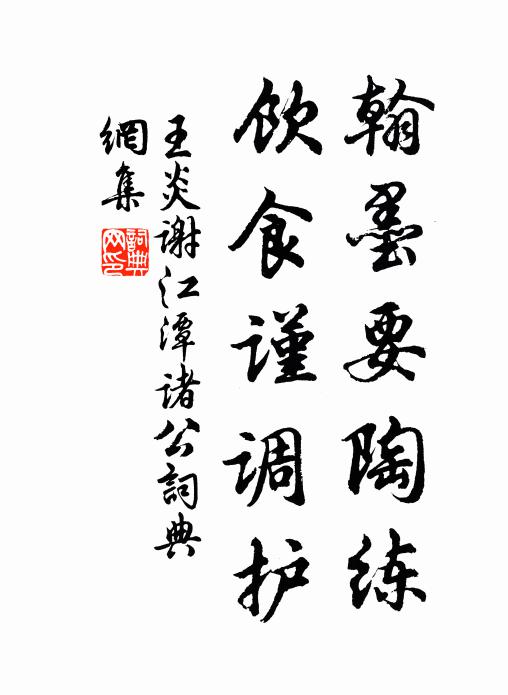 翰墨要陶练
饮食谨调护
王炎谢江潭诸公詞典
網集
詞典
网印